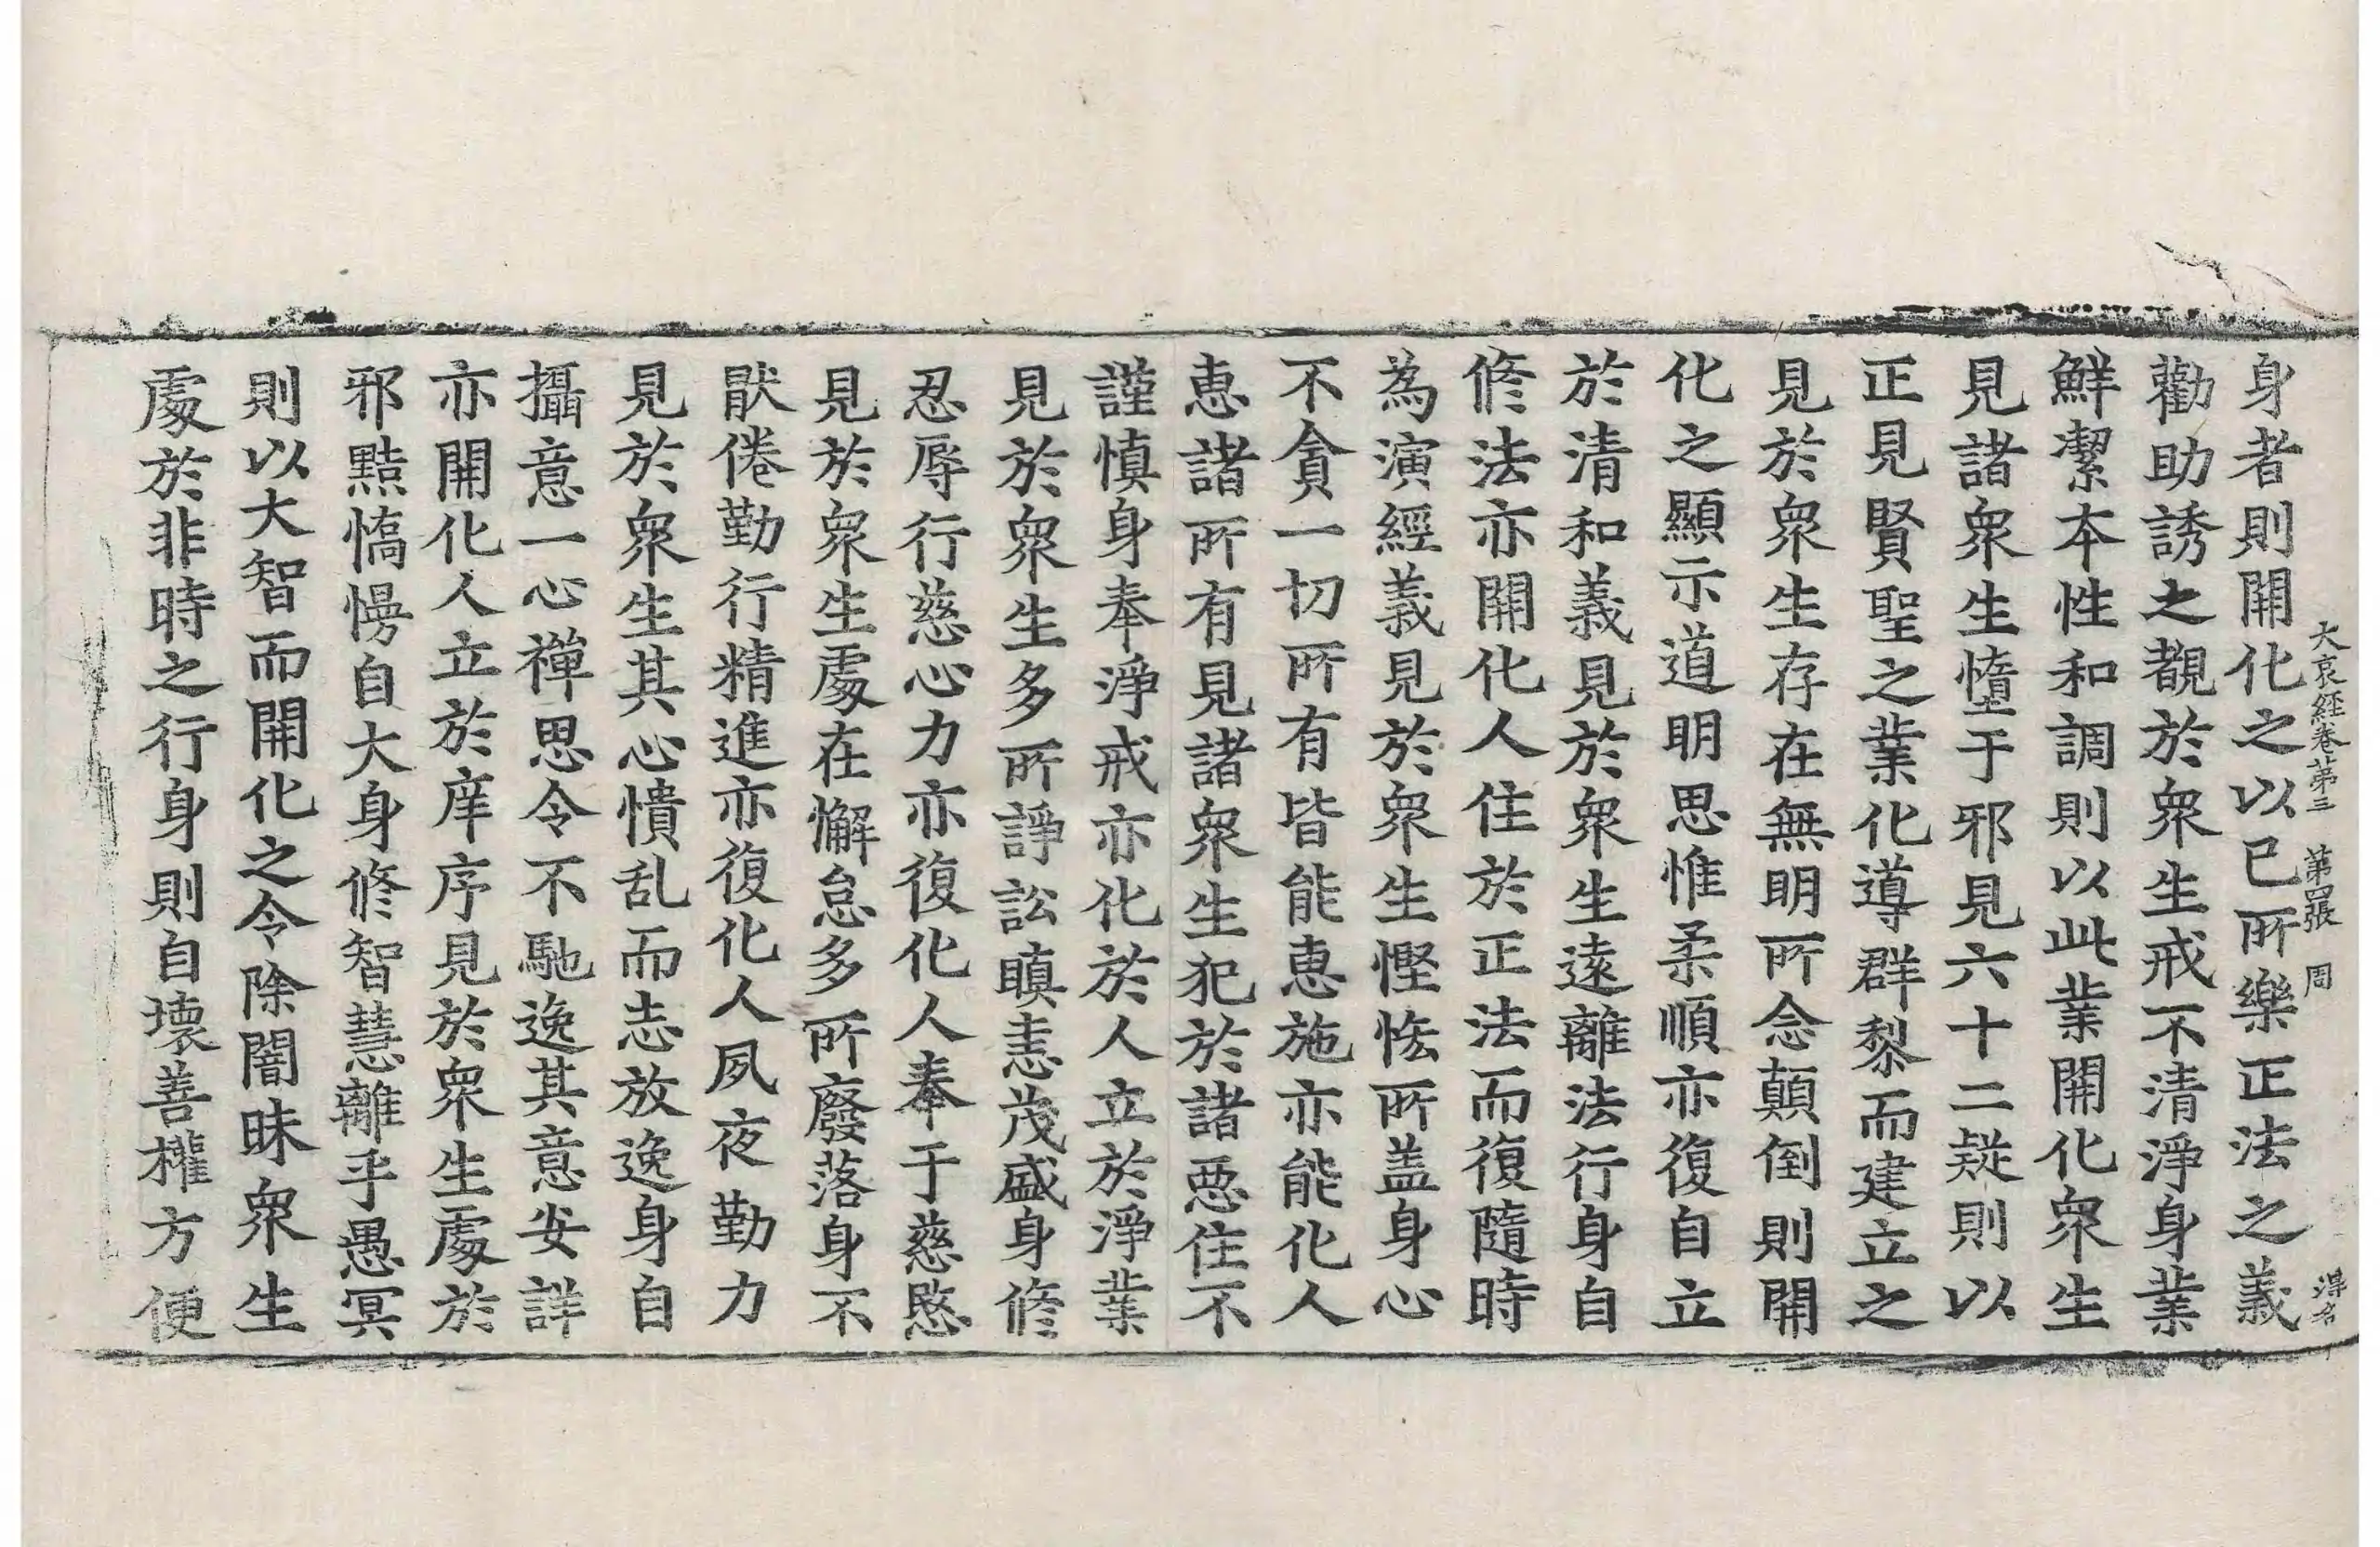 大哀経卷苐三 苐四張 周 淂名
身者則開化之以已所樂正法之義
勸助誘之覩於衆生戒不清淨身業
鮮潔本性和調則以此業開化衆生
見諸衆生墮于邪見六十二疑則以
正見賢聖之業化導群黎而建立之
見於衆生存在無明所念顛倒則開
化之顯示道明思惟柔順亦復自立
於清和義見於衆生遠離法行身自
修法亦開化人住於正法而復隨時
為演經義見於衆生慳悋所盖身心
不貪一切所有皆能恵施亦能化人
恵諸所有見諸衆生犯於諸悪住不
謹慎身奉淨戒亦化於人立於淨業
見於衆生多所諍訟瞋恚茂盛身修
忍辱行慈心力亦復化人奉于慈愍
見於衆生處在懈怠多所廢落身不
猒倦勤行精進亦復化人夙夜勤力
見於衆生其心憒乱而志放逸身自
攝意一心禪思令不馳逸其意安詳
亦開化人立於庠序見於衆生處於
邪黠憍慢自大身修智慧離乎愚冥
則以大智而開化之令除闇昧衆生
處於非時之行身則自壞善權方便